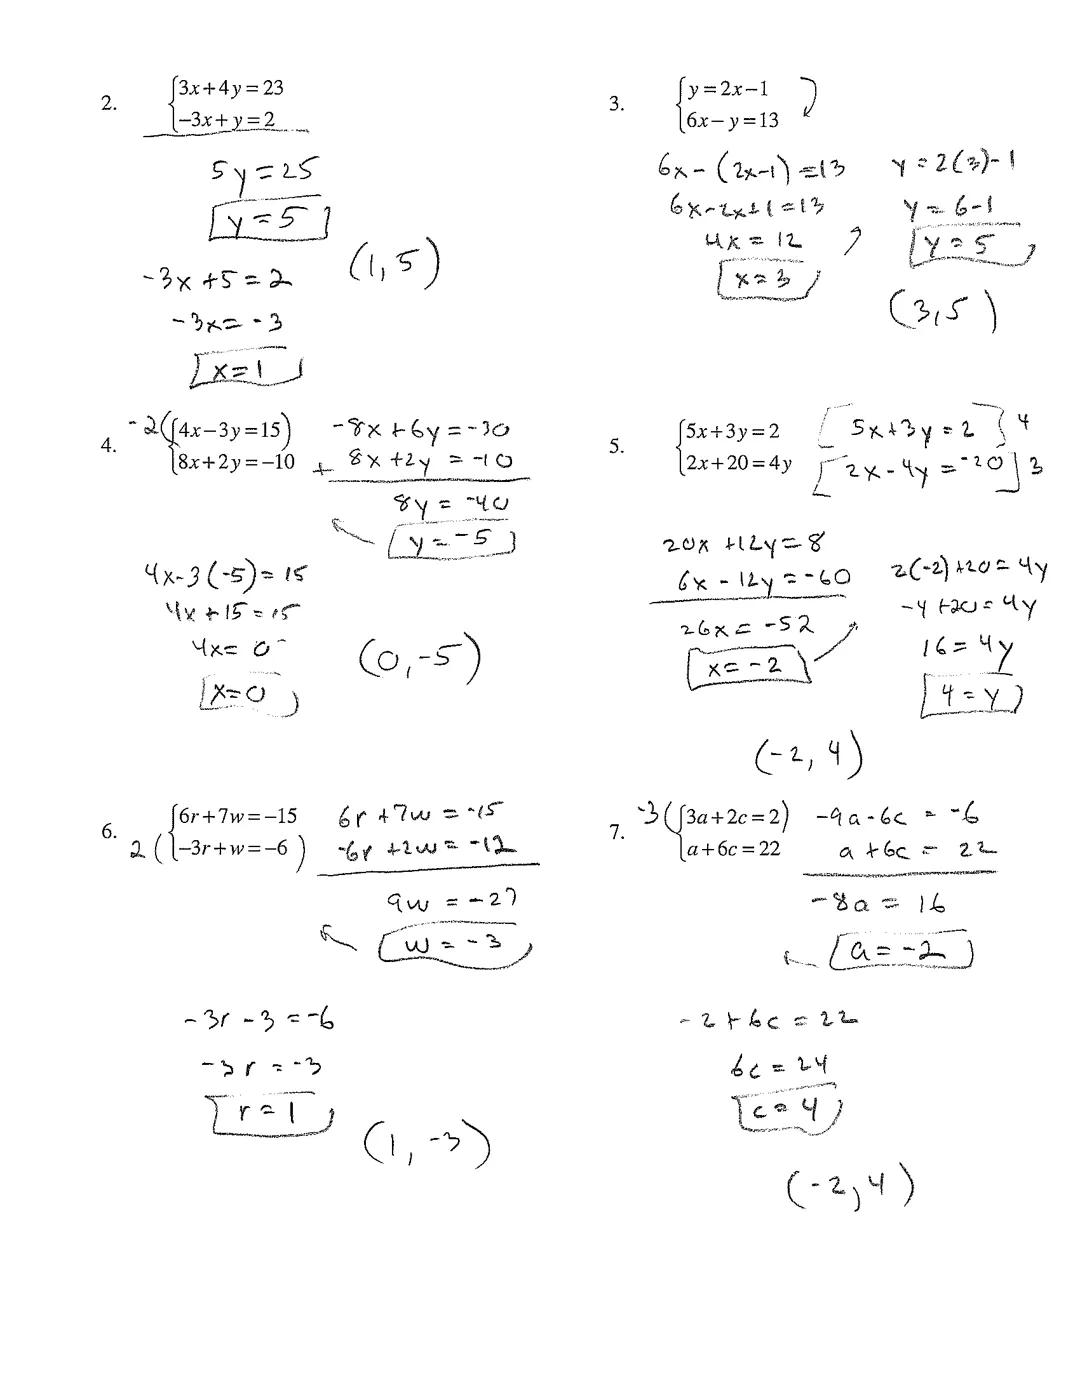 2. {3x+4y=23
-3x+y=2
5y=25
y=5
-3x+5=2
(1,5)
-3x=-3
x=1
3. {y=2x-1
6x-y=13
6x-(2x-1)=13
6x-2x+1=13
4x=12
x=3
y=2(3)-1
y=6-1
y=5
(3,5)
4. -2({4x-3y=15)
8x+2y=-10
-8x+6y=-30
+ 8x+2y=-10
8y=-40
y=-5
4x-3(-5)=15
4x+15=15
4x=0
x=0
(0,-5)
5. {5x+3y=2
2x+20=4y
[5x+3y=2]4
[2x-4y=-20]3
20x+12y=8
6x-12y=-60
26x=-52
x=-2
2(-2)+20=4y
-4+20=4y
16=4y
4=y
(-2,4)
6. {6r+7w=-15
2(-3r+w=-6)
6r+7w=-15
-6r+2w=-12
9w=-27
w=-3
-3r-3=-6
-3r=-3
r=1
(1,-3)
7. -3({3a+2c=2)
a+6c=22
-9a-6c=-6
a+6c=22
-8a=16
a=-2
-2+6c=22
6c=24
c=4
(-2,4)